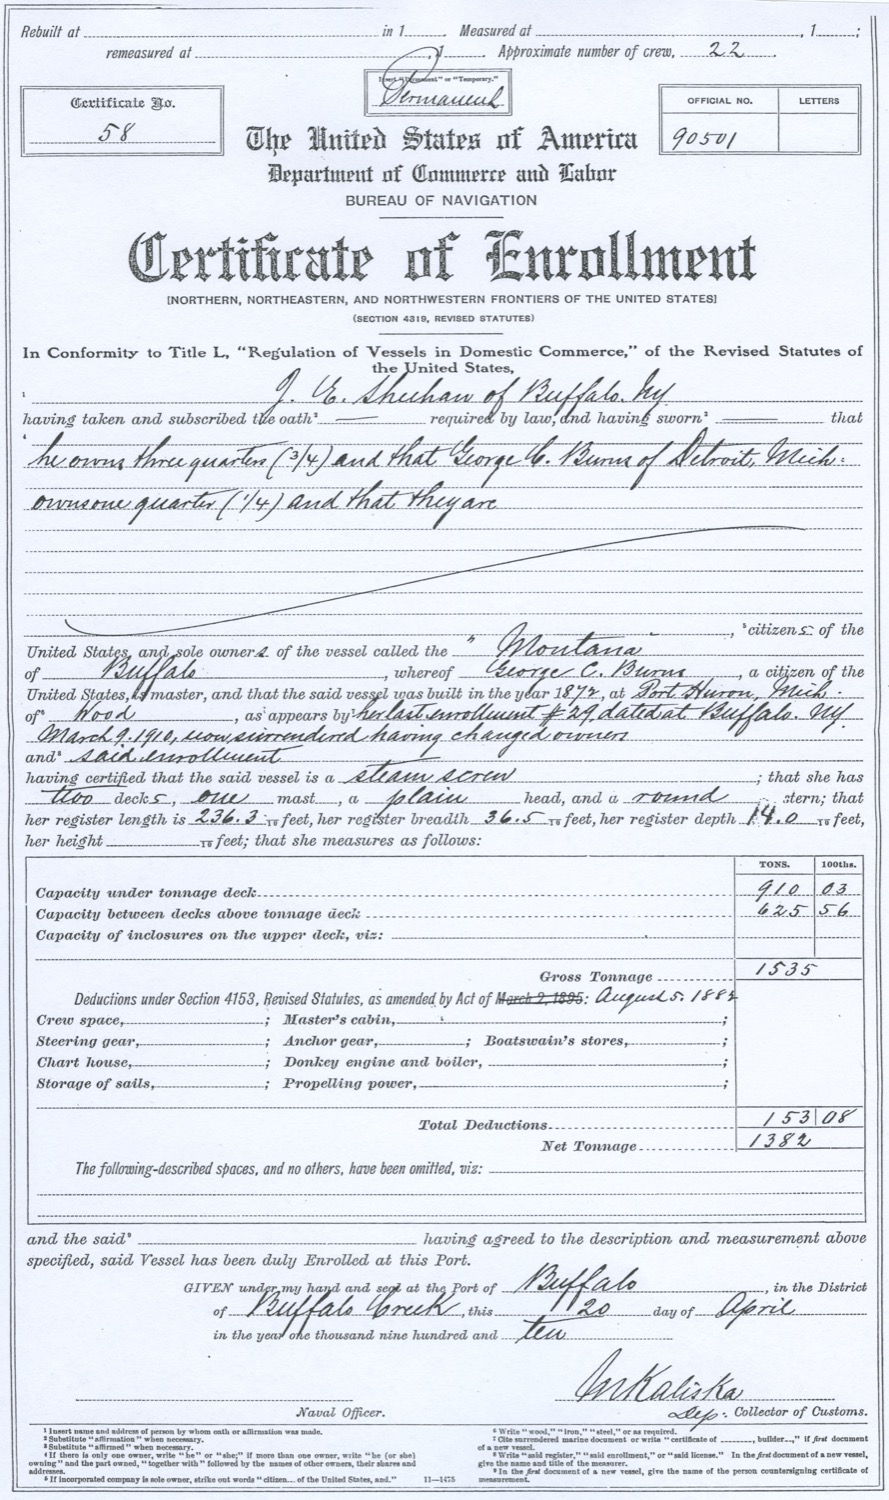 Rebuilt at in 1 Measured at , 1 ;
remeasured at , 1 Approximate number of crew, 22
Insert "Permanent" or "Temporary."
Permanent
Certificate No.
58
OFFICIAL NO. LETTERS
90501
The United States of America
Department of Commerce and Labor
BUREAU OF NAVIGATION
Certificate of Enrollment
[NORTHERN, NORTHEASTERN, AND NORTHWESTERN FRONTIERS OF THE UNITED STATES]
(SECTION 4319, REVISED STATUTES)
In Conformity to Title L, "Regulation of Vessels in Domestic Commerce," of the Revised Statutes of
the United States,
1 J. E. Sheehan of Buffalo. Ny
having taken and subscribed the oath2 required by law, and having sworn3 that
4
he owns three quarters (3/4) and that George C. Burns of Detroit, Mich.
owns one quarter (1/4) and that they are
, 5 citizens of the
United States, and sole owners of the vessel called the "Montana"
of Buffalo , whereof George C. Burns , a citizen of the
United States, is master, and that the said vessel was built in the year 1872, at Port Huron, Mich.
of6 Wood , as appears by7 her last enrollment # 29, dated at Buffalo. Ny.
March 9. 1910, now surrendered having changed owners
and8 said enrollment
having certified that the said vessel is a steam screw ; that she has
two decks, one mast , a plain head, and a round stern; that
her register length is 236.3 10 feet, her register breadth 36.5 10 feet, her register depth 14.0 10 feet,
her height 10 feet; that she measures as follows:
TONS. 100ths.
Capacity under tonnage deck 910 03
Capacity between decks above tonnage deck 625 56
Capacity of inclosures on the upper deck, viz:
Gross Tonnage 1535
Deductions under Section 4153, Revised Statutes, as amended by Act of March 2, 1895: August 5. 1882
Crew space, ; Master's cabin, ;
Steering gear, ; Anchor gear, ; Boatswain's stores, ;
Chart house, ; Donkey engine and boiler, ;
Storage of sails, ; Propelling power, ;
Total Deductions 153 08
Net Tonnage 1382
The following-described spaces, and no others, have been omitted, viz:
and the said9 having agreed to the description and measurement above
specified, said Vessel has been duly Enrolled at this Port.
GIVEN under my hand and seal at the Port of Buffalo , in the District
of Buffalo Creek , this 20 day of April
in the year one thousand nine hundred and ten
Kaliska
Naval Officer. Dep. Collector of Customs.
1 Insert name and address of person by whom oath or affirmation was made.
2 Substitute "affirmation" when necessary.
3 Substitute "affirmed" when necessary.
4 If there is only one owner, write "he" or "she;" if more than one owner, write "he (or she)
owning" and the part owned, "together with" followed by the names of other owners, their shares and
addresses.
5 If incorporated company is sole owner, strike out words "citizen... of the United States, and."
11—1475
6 Write "wood," "iron," "steel," or as required.
7 Cite surrendered marine document or write "certificate of ........, builder...," if first document
of a new vessel.
8 Write "said register," "said enrollment," or "said license." In the first document of a new vessel,
give the name and title of the measurer.
9 In the first document of a new vessel, give the name of the person countersigning certificate of
measurement.